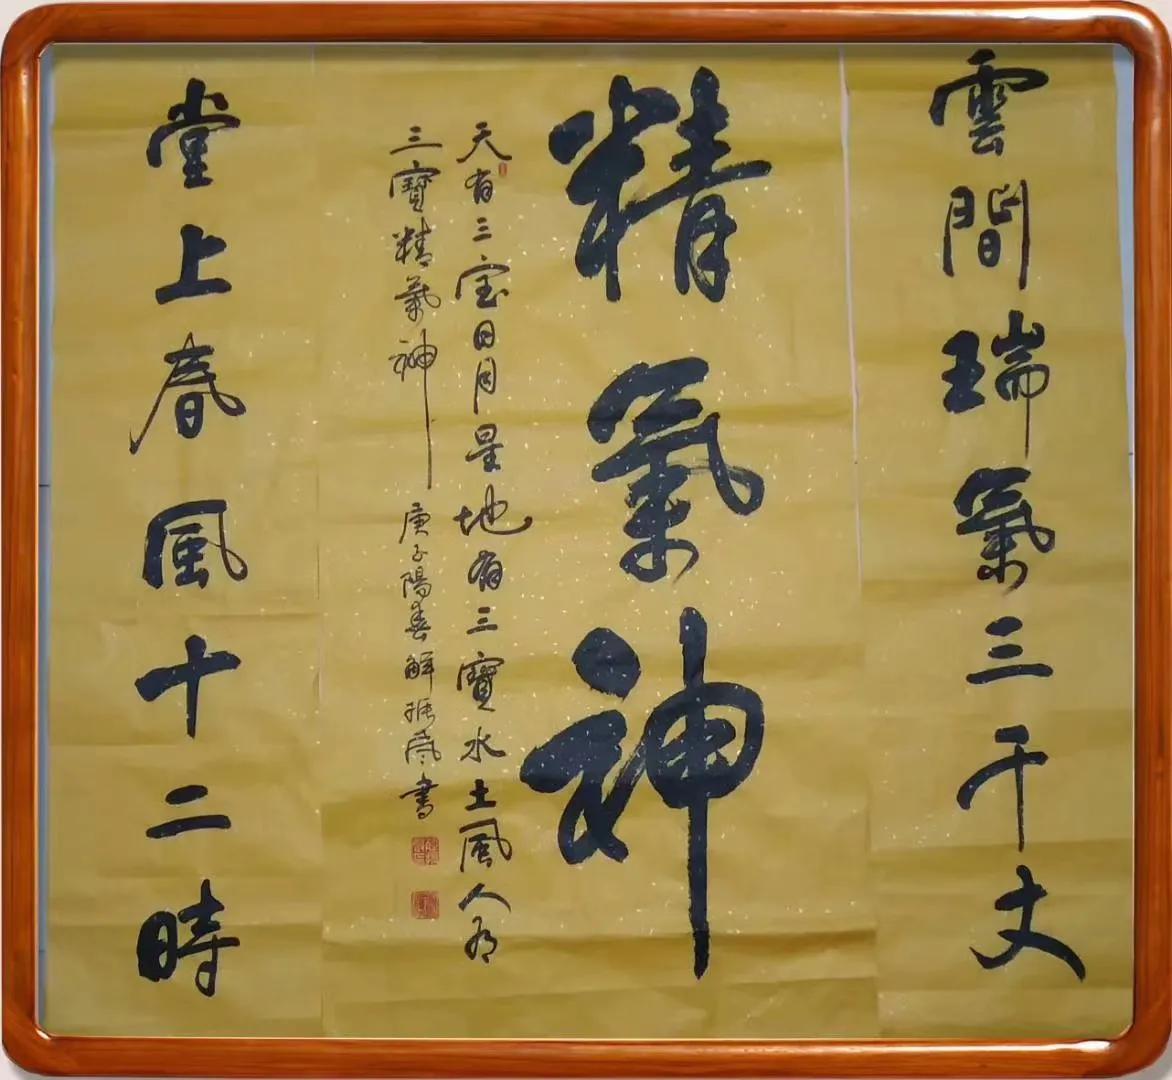 雲間瑞氣三千丈
精氣神
天有三宝日月星地有三寶水土風人有
三寶精氣神
庚子陽春解振風書
堂上春風十二時